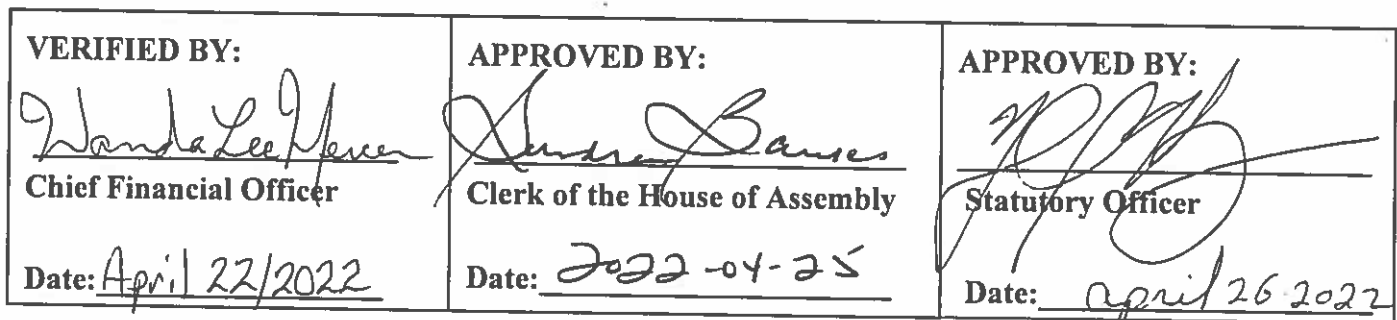 VERIFIED BY:
Wanda Lee Mercer
Chief Financial Officer
Date: April 22/2022
APPROVED BY:
Sandra Barnes
Clerk of the House of Assembly
Date: 2022-04-25
APPROVED BY:
Statutory Officer
Date: april 26 2022